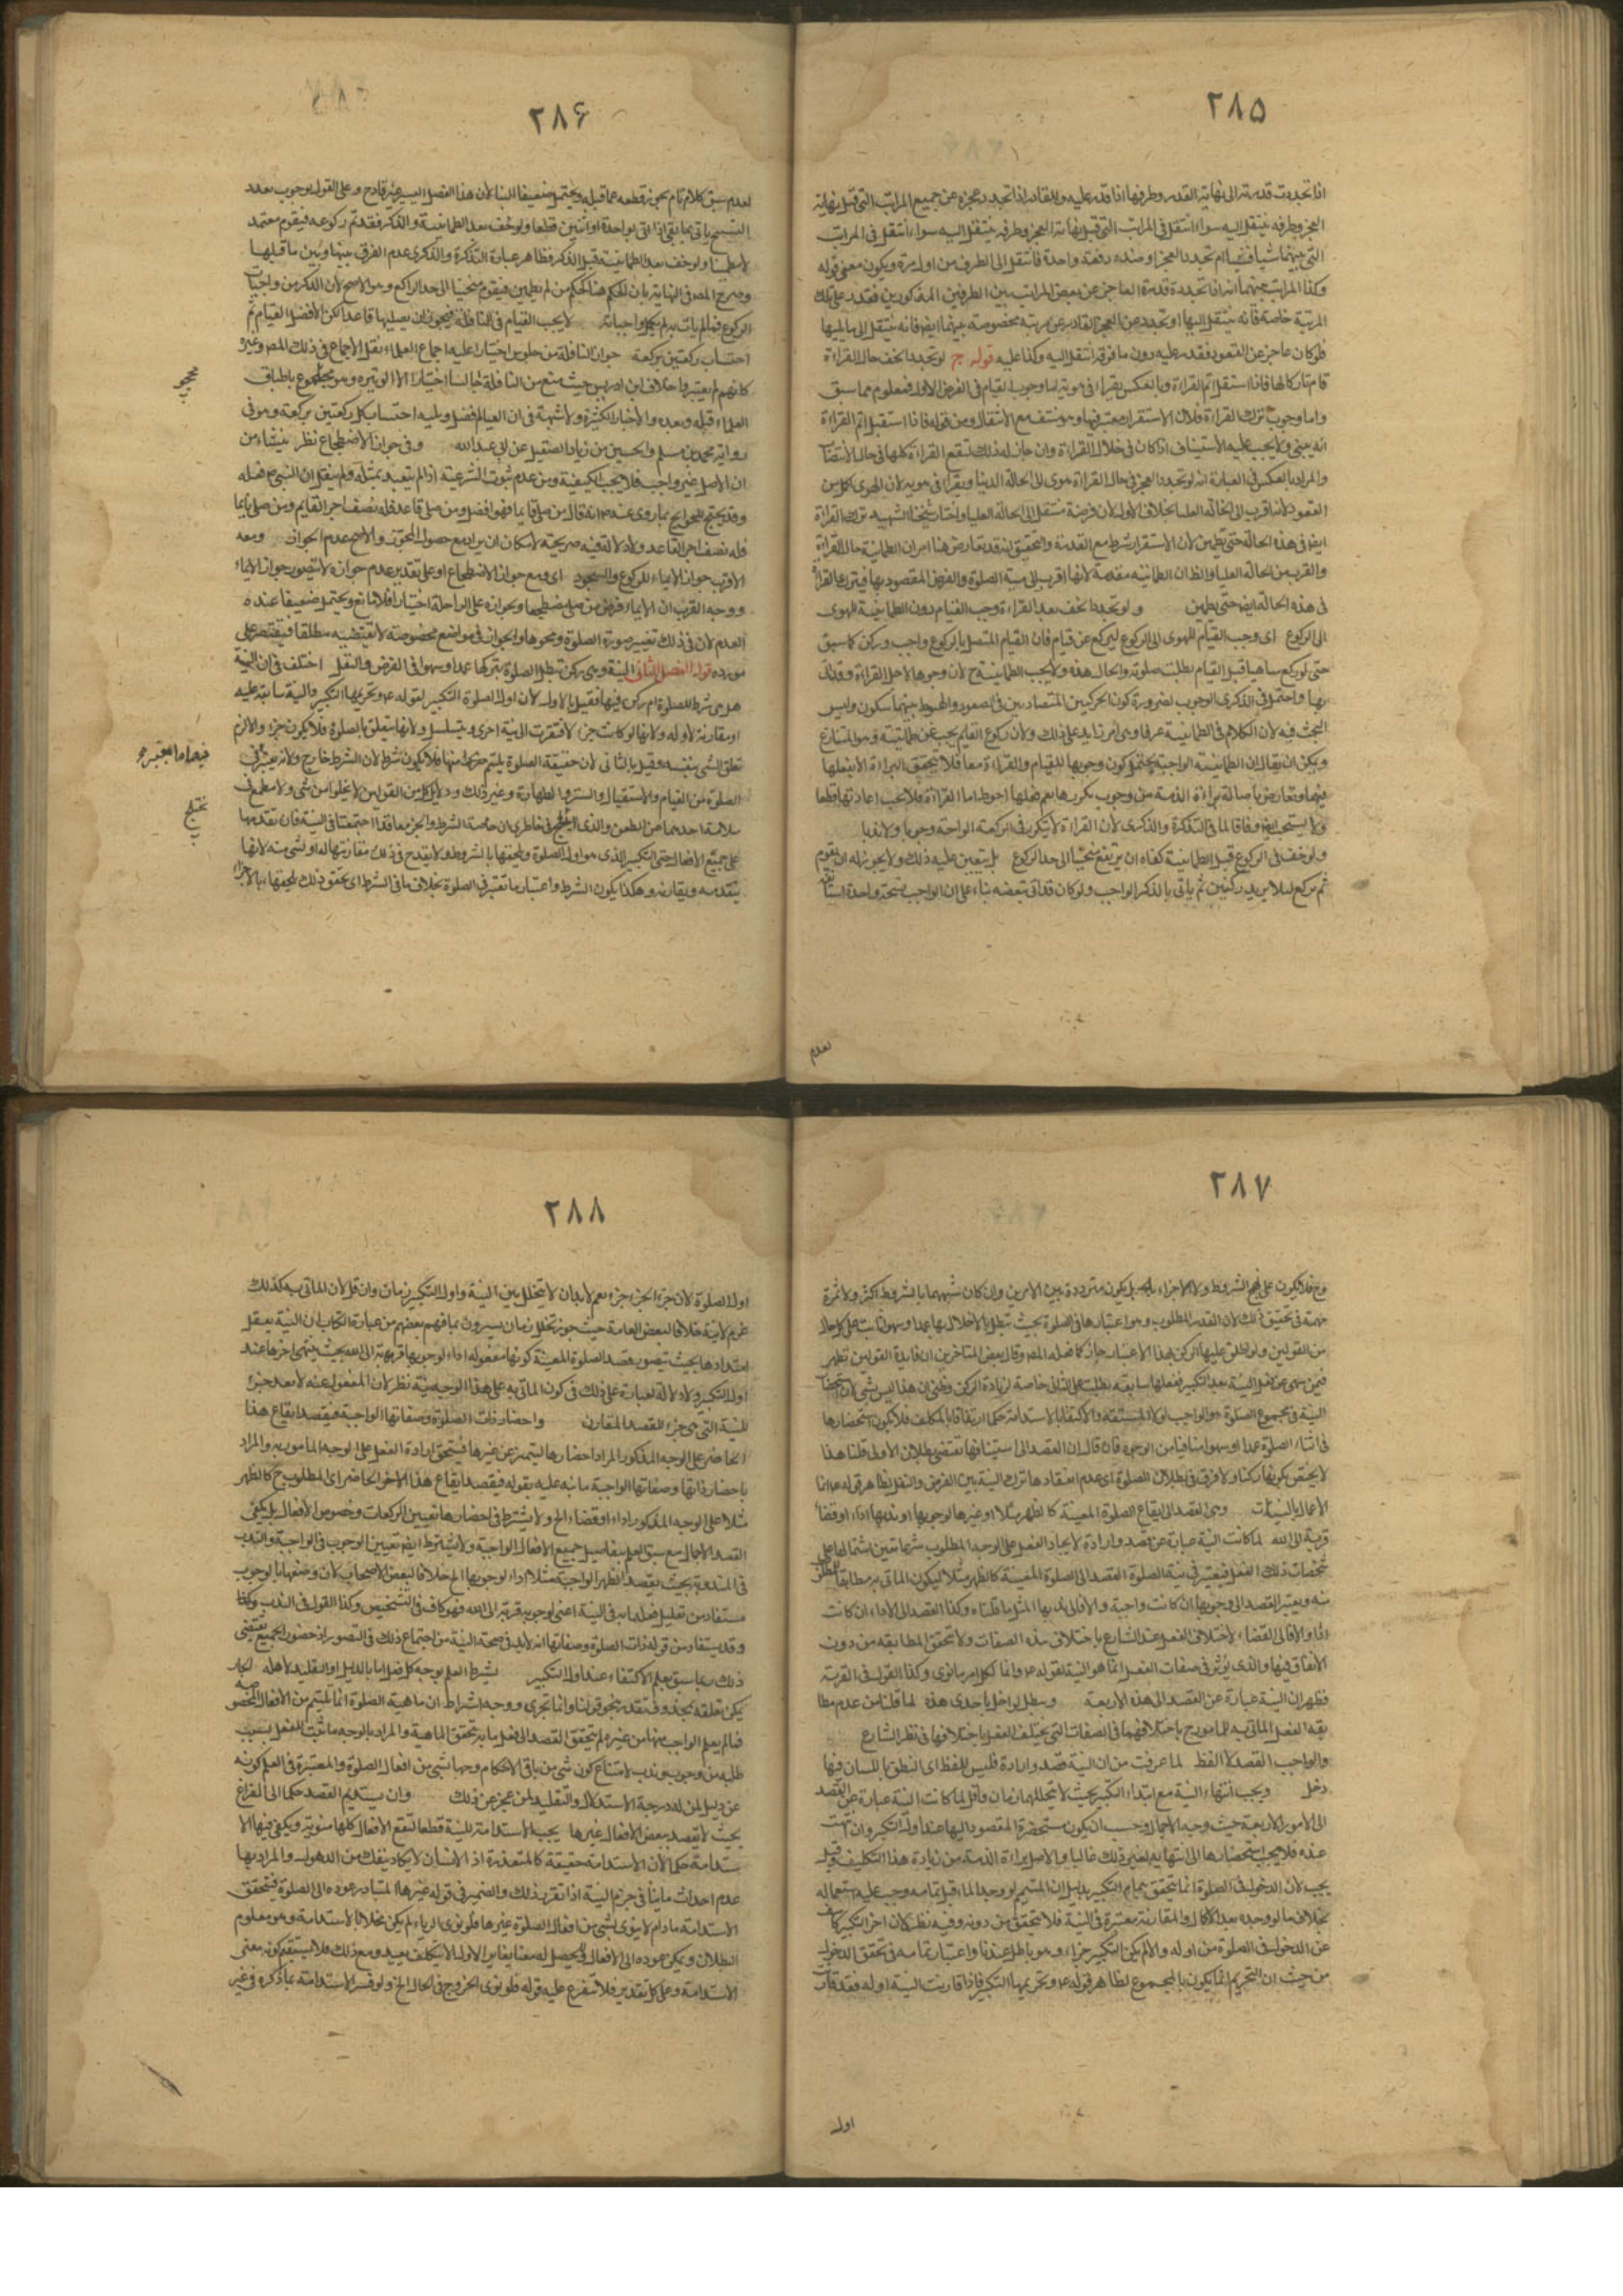 ٢٨۵
اذا تجددت قدرته الى نهاية القدر وطرفها اذا قدر عليه وللقادر اذا تجدد عجزه عن جميع المراتب التى قبل نهاية
العجز وطرفه ينتقل اليه سواء انتقل فى المراتب التى قبل نهاية العجز وطرفه ينتقل اليه سواء انتقل فى المراتب
التى بينهما شيئا فشيئا ام تجدد العجز او ضده دفعة واحدة فانتقل الى الطرف من اول مرة ويكون معنى قوله
وكذا المراتب بينهما انه اذا تجددت قدرة العاجز عن بعض المراتب بين الطرفين المذكورين فقدر على تلك
المرتبة خاصة فانه ينتقل اليها او تجدد عن العجز القادر عن مرتبة مخصوصة بينهما ايضا فانه ينتقل الى ما يليها
فلو كان عاجز عن القعود فقدر عليه دون ما فوقه انتقل اليه وكذا عليه قوله ج لو تجدد الخف حال القراءة
قام تاركا لها فاذا استقل اتم القراءة وبالعكس يقراء فى هويه اما وجوب القيام فى الفرض الاول فمعلوم مما سبق
واما وجوب ترك القراءة فلان الاستقرار معتبر فيها وهو منتف مع الانتقال ومن قوله فاذا استقبل اتم القراءة
انه يبنى ولا يجب عليه الاستيناف اذا كان فى خلال القراءة وان جاز له ذلك لتقع القراءة كلها فى حال الانتصاب
والمراد بالعكس فى العبارة انه لو تجدد العجز فى حال القراءة هوى الى الحالة الدنيا ويقراء فى هويه لان الهوى اكمل من
القعود لانه اقرب الى الحالة العليا بخلاف الاول لان فرضه تنتقل الى الحالة العليا واختار شيخنا الشهيد ترك القراءة
ايضا فى هذه الحالة حتى يطمئن لان الاستقرار شرط مع القدرة والتحقيق انه قد تعارض هنا امران الطمانينة حال القراءة
والقرب من الحالة العليا والظ ان الطمانينه مقدمة لانها اقرب الى هيئة الصلوة والفرض المقصود بها فيترك القراءة
فى هذه الحالة ايضا حتى يطمئن ولو تجدد الخف بعد القراءة وجب القيام دون الطمانينة للهوى
الى الركوع اى وجب القيام للهوى الى الركوع ليركع عن قيام فان القيام المتصل بالركوع واجب وركن كما سبق
حتى لو ركع ساهيا قبل القيام بطلت صلوته والحال هذه ولا يجب الطمانينة ح لان وجوبها لاجل القراءة وقد اتى
بها واحتمل فى الذكرى الوجوب لضرورة كون الحركتين المتضادتين فى الصعود والهبوط بينهما سكون وليس
البحث فيه لان الكلام فى الطمانينة عرفا وهى امر زايد على ذلك ولان ركوع القايم يجب عن طمانينة وهو المتنازع
ويمكن ان يقال ان الطمانينة الواجبة يحتمل كون وجوبها للقيام والقراءة معا فلا يتحقق البراءة الا بفعلها
فيهما وتعارض باصالة براءة الذمة من وجوب تكررها نعم فعلها احوط اما القراءة فلا تجب اعادتها قطعا
ولا يستحب ايضا وفاقا لما فى التذكرة والذكرى لان القراءة لا يتكرر فى الركعة الواحدة وجوبا ولا ندبا
ولو خف فى الركوع قبل الطمانينة كفاه ان يرتفع منحنيا الى حد الراكع بل يتعين عليه ذلك ولا يجوز له ان يقوم
ثم يركع لئلا يزيد ركنين ثم ياتى بالذكر الواجب ولو كان قد اتى ببعضه بناء على ان الواجب تسبيحة واحدة استانفه
لعدم
٢٨۶
لعدم سبق كلام تام يجوز قطعه عما قبله ويحتمل ضعيفا البناء لان هذا الفصل اليسير غير قادح وعلى القول بوجوب تعدد
التسبيح ياتى بما بقى اذا اتى بواحدة او اثنتين قطعا ولو خف بعد الطمانينة والذكر فقد تم ركوعه فيقوم معتمد
لا مطمئنا ولو خف بعد الطمانينة قبل الذكر فظاهر عبارة التذكرة والذكرى عدم الفرق بينها وبين ما قبلها
وصرح المصه فى النهاية بان الحكم هنا كالحكم من لم يطمئن فيقوم منحنيا الى حد الراكع وهو الاصح لان الذكر من واجبات
الركوع فما لم يات به لم يكمل واجباته لا يجب القيام فى النافلة فيجوز ان يصليها قاعدا لكن الافضل القيام ثم
احتساب ركعتين بركعة جواز النافلة من جلوس اختيارا عليه اجماع العلماء نقل الاجماع فى ذلك المصه وغيره
كانهم لم يعتبروا خلاف ابن ادريس حيث منع من النافلة جالسا اختيارا الا الوتيره وهو محجوج باطباق
محجوج
العلماء قبله وبعده والاخبار الكثيرة ولا شبهة فى ان القيام افضل ويليه احتساب كل ركعتين بركعة وهو فى
رواية محمد بن مسلم والحسين بن زياد الصيقل عن ابى عبد الله وفى جواز الاضطجاع نظر ينشاء من
ان الاصل غير واجب فلا يجب الكيفية ومن عدم ثبوت الشرعية اذ لم يتعبد بمثله ولم ينقل ان النبى ص فعله
وقد يحتج للجواز بما روى عنه ص انه قال من صلى قايما فهو افضل ومن صلى قاعدا فله نصف اجر القايم ومن صلى نايما
فله نصف اجر القاعد ولا دلالة فيه صريحة لامكان ان يراد مع حصول المجوز والاصح عدم الجواز ومعه
الاقرب جواز الايماء للركوع والسجود اى ومع جواز الاضطجاع او على تقدير عدم جوازه لا يتصور جواز الايماء
ووجه القرب ان الايماء فرض من صلى مضطجعا وبجوازه على الراحلة اختيارا فلا مانع ويحتمل ضعيفا عنده
العدم لان فى ذلك تغيير صورة الصلوة ومحوها والجواز فى مواضع مخصوصة لا يقتضيه مطلقا فيقتصر على
مورده قوله الفصل الثانى النية وهى ركن تبطل الصلوة بتركها عمدا وسهوا فى الفرض والنفل اختلف فى ان النية
هل هى شرط للصلوة ام ركن فيها فقيل بالاول لان اول الصلوة التكبير لقوله ع وتحريمها التكبير والنية سابقة عليه
او مقارنة لاوله ولانها لو كانت جزءا لافتقرت الى نية اخرى ويتسلسل ولانها تتعلق بالصلوة فلا يكون جزءا والا لزم
تعلق الشى بنفسه وقيل بالثانى لان حقيقة الصلوة يلتئم منها فلا يكون شرطا لان الشرط خارج ولانه يعتبر فى
الصلوة من القيام والاستقبال والستر والطهارة وغير ذلك ودلايل كل من القولين لا يخلوا من شى ولا مطمع فى
سلامة احدهما من الطعن والذى يختلج فى خاطرى ان خاصة الشرط والجزء معا قد اجتمعتا فى النية فان تقدمها
يختلج
على جميع الافعال حتى التكبير الذى هو اول الصلوة ويلحقها بالشروط ولا يقدح فى ذلك مقارنتها له او لشى منه لانها
يتقدمه ويقارنه وهكذا يكون الشرط واعتبار ما تعتبر فى الصلوة بخلاف باقى الشرط اى تحقق ذلك يلحقها بالاجزاء
٢٨٧
وح فلا يكون على نهج الشروط ولا الاجزاء بل يكون مترددة بين الامرين وان كان شبهها بالشروط اكثر ولا ثمرة
مهمة فى تحقيق ذلك لان القدر المطلوب وهو اعتبارها فى الصلوة بحيث تبطل بالاخلال بها عمدا وسهوا ثابت على كل حال
من القولين ولو اطلق عليها الركن بهذا الاعتبار جاز كما فعله المصه وقال بعض المتاخرين ان فايدة القولين تظهر
فيمن سهى عن فعل النية بعد التكبير ففعلها سابقه بطلت على الثانى خاصة لزيادة الركن وظنى ان هذا ليس بشى لان استحضار
النية فى مجموع الصلوة هو الواجب لولا المشقة والاكتفاء بالاستدامة حكما ارتفاقا بالمكلف فلا يكون استحضارها
فى اثناء الصلوة عمدا او سهوا منافيا من الوجوه فان قال ان القصد الى استينافها تقتضى بطلان الاولى قلنا هذا
لا يختص كونها ركنا ولا فرق فى بطلان الصلوة اى عدم انعقادها بترك النية بين الفرض والنفل لظاهر قوله ع انما
الاعمال بالنيات وهى القصد الى ايقاع الصلوة المعينة كالظهر مثلا او غيرها لوجوبها او ندبها اداء او قضاء
قربة الى الله لما كانت النية عبارة عن قصد وارادة لايجاد الفعل على الوجه المطلوب شرعا تعين اشتمالها على
مشخصات ذلك الفعل فيعتبر فى نية الصلوة القصد الى الصلوة المعينة كالظهر مثلا ليكون الماتى به مطابقا للمطلوب
منه ويعتبر القصد الى وجوبها ان كانت واجبة والا فالى ندبها لمثل ما قلناه وكذا القصد الى الاداء ان كانت
اداء والا فالى القضاء لاختلاف الفعل عند الشارع باختلاف هذه الصفات ولا تحقق المطابقه من دون
الاتفاق فيها والذى يوثر فى صفات الفعل انما هو النية لقوله ع وانما لكل امرء ما نوى وكذا القول فى القربة
فظهر ان النية عبارة عن القصد الى هذه الاربعة وتبطل لو اخل باحدى هذه لما قلناه من عدم مطا
بقه الفعل الماتى به للمامور ح باختلافهما فى الصفات التى يختلف الفعل باختلافها فى نظر الشارع
والواجب القصد لا اللفظ لما عرفت من ان النية قصد وارادة فليس للفظ اى النطق باللسان فيها
دخل ويجب انتهاء النية مع ابتداء التكبير بحيث لا تخللهما زمان وان قل لما كانت النية عبارة عن القصد
الى الامور الاربعة حيث وجبه الاجمال وحسب ان يكون مستحضرة المقصود اليها عند اول التكبير وان انتهت
عنده فلا يجب استحضارها الى انتهايه لتعسر ذلك غالبا والاصل براءة الذمة من زيادة هذا التكليف وقيل
يجب لان الدخول فى الصلوة انما يتحقق بتمام التكبير بدليل ان المتيمم لو وجد الماء قبل تمامه وجب عليه استعماله
بخلاف ما لو وجده بعد الاكمال والمقارنة معتبرة فى النية فلا يتحقق من دونه وفيه نظر لان اخر التكبير كاشف
عن الدخول فى الصلوة من اوله والا لم يكن التكبير جزءا وهو باطل عندنا واعتبار تمامه فى تحقق الدخول
من حيث ان التحريم انما يكون بالمجموع لظاهر قوله ع وتحريمها التكبير فاذا قارنت النية اوله فقد قارنت
اول
٢٨٨
اول الصلوة لان جزء الجزء جزء نعم لا بد ان لا يتخلل بين النية واول التكبير زمان وان قل لان الماتى به كذلك
عزم لا نية خلافا لبعض العامة حيث جوز تخلل زمان يسير وربما فهم بعضهم من عبارة الكتاب ان النية يعقل
امتدادها بحيث يتصور قصد الصلوة المعينة كونها مفعوله اداء لوجوبها قربة الى الله بحيث ينتهى اخرها عند
اول التكبير ولا دلالة لعبارة على ذلك فى كون الماتى به على هذا الوجه نية نظر لان المفعول عنه لا يعد جزء
للنية التى هى جزء للقصد المقارن واحضار ذات الصلوة وصفاتها الواجبة فيقصد ايقاع هذا
الحاضر على الوجه المذكور المراد احضارها ليتميز عن غيرها فيتحقق ارادة الفعل على الوجه المامور به والمراد
باحضار ذاتها وصفاتها الواجبة ما نبه عليه بقوله فيقصد ايقاع هذا الامر الحاضر اى المطلوب ح كالظهر
مثلا على الوجه المذكور اداء او قضاء الخ ولا يشترط فى احضارها تعيين الركعات وخصوص الافعال بل يكفى
القصد الاجمالى مع سبق العلم بتفاصيل جميع الافعال الواجبة ولا يشترط ايضا تعيين الوجوب فى الواجبة والندب
فى المندوبة بحيث يقصد الظهر الواجبة مثلا اداء لوجوبها الخ خلافا لبعض الاصحاب لان وصفها بالوجوب
مستفاد من تعليل فعلها به فى النية اعنى لوجوبه قربة الى الله فهو كاف فى التشخيص وكذا القول فى الندب وكذا
وقد يستفاد من قوله ذات الصلوة وصفاتها انه لا بد فى صحة النية من اجتماع ذلك فى التصور اذ حضور الجميع يقتضى
ذلك ربما سبق يعلم الاكتفاء عند اول التكبير يشترط العلم بوجه كل فعل اما بالدليل او التقليد لاهله الجار
يمكن تعلقه بمحذوف تقديره نحو قولنا وانما تجزى ووجه اشتراط ان ماهية الصلوة انما تلتئم من الافعال المخصوصه
فما لم يعلم الواجب منها من غيره لم يتحقق القصد الى فعل ما به تحقق الماهية والمراد بالوجه ما ثبت للفعل بسبب
طلبه من وجوب وندب لامتناع كون شى من باقى الاحكام وجها لشى من افعال الصلوة والمعتبرة فى العلم كونه
عن دليل لمن له درجة الاستدلال والتقليد لمن عجز عن ذلك وان يستديم القصد حكما الى الفراغ
بحيث لا يقصد ببعض الافعال غيرها يجب الاستدامة للنية قطعا لتقع الافعال كلها منوية ويكفى فيها الا
ستدامة حكما لان الاستدامة حقيقة كالمتعذرة اذ الانسان لا يكاد ينفك من الذهول والمراد بها
عدم احداث ما ينافى جزم النية اذا تقرر ذلك والضمير فى قوله غيرها المتبادر عوده الى الصلوة فيتحقق
الاستدامة ما دام لا ينوى بشى من افعال الصلوة غيرها فلو نوى الرياء لم يكن مخلا بالاستدامة وهو معلوم
البطلان ويمكن عوده الى الافعال فيحصل له معنا يغاير الاول الا انه كلف بعيد ومع ذلك فلا يستقيم كونه معنى
الاستدامة وعلى كل تقدير فلا يتفرع عليه قوله فلو نوى الخروج فى الحال الخ ولو فسر الاستدامة بما ذكره فى غير